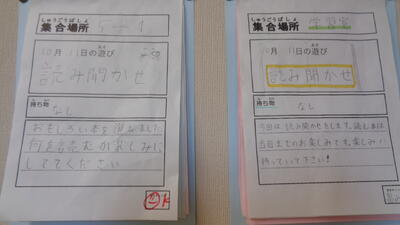 しゅうごうばしょ
集合場所 5-1
10月 11日の遊び
読み聞かせ
持ち物
なし
おもしろい本を選びました
何を読むか楽しみに
しててください
しゅうごうばしょ
集合場所 学習室
10月 11日の遊び
読み聞かせ
持ち物
なし
今回は読み聞かせをします。読む本は
当日までのお楽しみです。楽しみに
待っていて下さい!